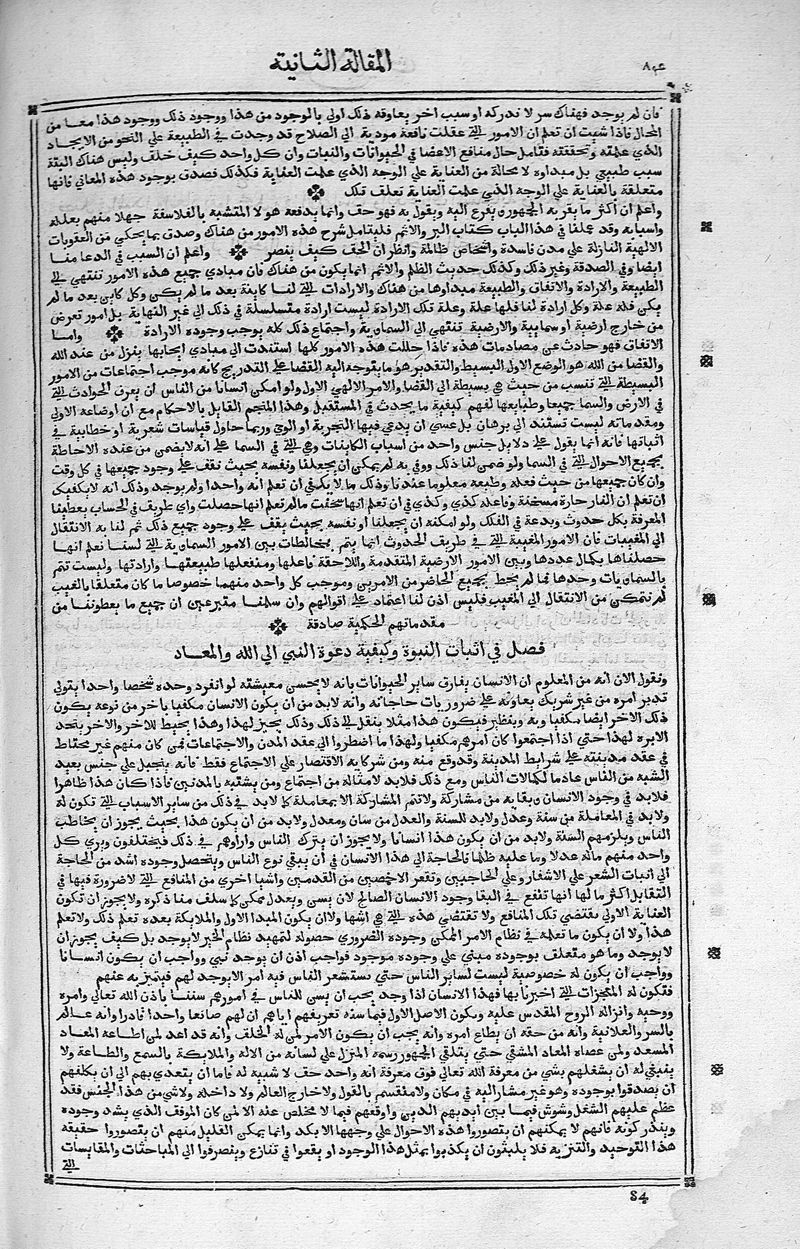 المقالة الثانية
فان لم يوجد فهناك سر لا ندركه او سبب اخر يعاوقه ذلك اولي بالوجود من هذا ووجود ذلك ووجود هذا معا من
المحال فاذا شيت ان تعلم ان الامور التي عقلت نافعة مودية الي الصلاح قد وجدت في الطبيعة علي النحو من الايجاد
الذي علمته وتحققته فتامل حال منافع الاعضا في الحيوانات والنبات وان كل واحد كيف خلف وليس هناك البتة
سبب طبيعي بل مبداوه لا محالة من العناية علي الوجه الذي علمت العناية فكذلك فصدق بوجود هذه المعاني فانها
متعلقة بالعناية علي الوجه الذي علمت العناية تعلف تلك
واعلم ان أكثر ما يقر به الجمهور ويفزع اليه ويقول به فهو حق وانما يدفعه هولا المتشبه بالفلاسفة جهلا منهم بعلله
واسبابه وقد عملنا في هذا الباب كتاب البر والاثم فليتامل شرح هذه الامور من هناك وصدق بما يحكي من العقوبات
الالهية النازلة علي مدن فاسدة واشخاص ظالمة وانظر ان الحف كيف ينصر واعلم ان السبب في الدعا منا
ايضا وفي الصدقة وغير ذلك وكذلك حدوث الظلم والاثم انما يكون من هناك فان مبادي جميع هذه الامور تنتهي الي
الطبيعة والارادة والاتفاق والطبيعة مبداوها من هناك والارادات التي لنا كاينة بعد ما لم يكن وكل كاين بعد ما لم
يكن فله علة وكل ارادة لنا فلها علة وعلة تلك الارادة ليست ارادة متسلسلة في ذلك الي غير النهاية بل امور تعرض
من خارج ارضية او سماوية والارضية تنتهي الي السماوية واجتماع ذلك كله يوجب وجود الارادة واما
الاتفاق فهو حادث عن مصادمات هذه فاذا حللت هذه الامور كلها استندت الي مبادي ايجابها ينزل من عند الله
والقضا من الله هو الوضع الاول البسيط والتقدير هو ما يتوجه اليه القضا علي التدريج كانه موجب اجتماعات من الامور
البسيطة التي تنسب من حيث هي بسيطة الي القضا والامر الالهي الاول ولو امكن انسانا من الناس ان يعرف الحوادث التي
في الارض والسما جميعا وطبايعها لفهم كيفية ما يحدث في المستقبل وهذا المنجم القايل بالاحكام مع ان اوضاعه الاولي
ومقدماته ليست تستند الي برهان بل عسي ان يدعي فيها التجربة او الوحي وربما حاول قياسات شعرية او خطابية في
اثباتها فانه انما يقول علي دلايل جنس واحد من اسباب الكاينات وهي التي في السما علي انه لا يضمن من عنده الاحاطة
بجميع الاحوال التي في السما ولو ضمن لنا ذلك ووفي به لم يمكن ان يجعلنا ونفسه بحيث نقف علي وجود جميعها في كل وقت
وان كان جميعها من حيث فعله وطبعه معلوما عندنا وذلك مما لا يكفي ان تعلم انه واحدا ولم يوجد وذلك انه لا يكفيك
ان تعلم ان النار حارة مسخنة وفاعلة كذي وكذي في ان تعلم انها سخنت ما لم تعلم انها حصلت واي طريف في الحساب يعطينا
المعرفة بكل حدوث وبدعة في الفلك ولو امكنه ان يجعلنا او نفسه بحيث يقف علي وجود جميع ذلك ثم لنا به الانتقال
الي المغيبات فان الامور المغيبة التي في طريف الحدوث انما يتم بمخالطات بين الامور السماوية التي لسنا نعلم انها
حصلناها بكمال عددها وبين الامور الارضية المتقدمة واللاحقة فاعلها ومنفعلها طبيعتها وارادتها وليست تتم
بالسماويات وحدها فما لم يحط بجميع الحاضر من الامرين وموجب كل واحد منهما خصوصا ما كان متعلقا بالغيب
لم نتمكن من الانتقال الي المغيب فليس اذن لنا اعتماد علي اقوالهم وان سلمنا متبرعين ان جميع ما يعطوننا من
مقدماتهم الحكمية صادقة
فصل في اثبات النبوة وكيفية دعوة النبي الي الله والمعاد
ونقول الان أنه من المعلوم ان الانسان يفارق ساير الحيوانات بانه لا يحسن معيشته لو انفرد وحده شخصا واحدا يتولي
تدبر امره من غير شريك يعاونه علي ضروريات حاجاته وانه لابد من ان يكون الانسان مكفيا باخر من نوعه يكون
ذلك الاخر ايضا مكفيا وبه وبنظيره فيكون هذا مثلا ينقل الي ذلك وذلك يخبز لهذا وهذا يخيط للاخر والاخر يتخذ
الابره لهذا حتي اذا اجتمعوا كان امرهم مكفيا ولهذا ما اضطروا الي عقد المدن والاجتماعات فمن كان منهم غير محتاط
في عقد مدينته علي شرايط المدينة وقد وقع منه ومن شركايه الاقتصار علي الاجتماع فقط فانه يتحيل علي جنس بعيد
الشبه من الناس عادما لكمالات الناس ومع ذلك فلابد لامثاله من اجتماع ومن يشتبه بالمدنيين فاذا كان هذا ظاهرا
فلابد في وجود الانسان وبقايه من مشاركة ولا تتم المشاركة الا بمعاملة كما لابد في ذلك من ساير الاسباب التي تكون له
ولابد في المعاملة من سنة وعدل ولابد للسنة والعدل من سان ومعدل ولابد من ان يكون هذا بحيث يجوز ان يخاطب
الناس ويلزمهم السنة ولابد من ان يكون هذا انسانا ولا يجوز ان يترك الناس واراوهم في ذلك فيختلفون ويري كل
واحد منهم ماله عدلا وما عليه ظلما فالحاجة الي هذا الانسان في ان يبقي نوع الناس ويتحصل وجوده اشد من الحاجة
الي انبات الشعر علي الاشفار وعلي الحاجبين وتقعر الاخمصين من القدمين واشيا اخري من المنافع التي لا ضرورة فيها في
التقابل اكثر ما لها انها تنفع في البقا وجود الانسان الصالح لان يسن ويعدل ممكن كما سلف منا ذكره ولا يجوز ان تكون
العناية الاولي تقتضي تلك المنافع ولا تقتضي هذه التي هي اسها ولا ان يكون المبدا الاول والملايكة بعده تعلم ذلك ولا تعلم
هذا ولا ان يكون ما تعلمه في نظام الامر الممكن وجوده الضروري حصوله لتمهيد نظام الخير لا يوجد بل كيف يجوز ان
لا يوجد وما هو متعلف بوجوده مبني علي وجوده موجود فواجب اذن ان يوجد نبي وواجب ان يكون انسانا
وواجب ان يكون له خصوصية ليست لساير الناس حتي يستشعر الناس فيه امر الا يوجد لهم فيتميز به عنهم
فتكون له المعجزات التي اخبرنا بها فهذا الانسان اذا وجد يجب ان يسن للناس في امورهم سننا باذن الله تعالي وامره
ووحيه وانزاله الروح المقدس عليه ويكون الاصل الاول فيما سنه تعريفهم اياهم ان لهم صانعا واحدا قادرا وانه عالم
بالسر والعلانية وانه من حقه ان يطاع امره وانه يجب ان يكون الامر لمن له الخلف وانه قد اعد لمن اطاعه المعاد
المسعد ولمن عصاه المعاد المشقي حتي يتلقي الجمهور رسمه المنزل علي لسانه من الاله والملايكة بالسمع والطاعة ولا
ينبغي له ان يشغلهم بشي من معرفة الله تعالي فوق معرفة انه واحد حق لا شبيه له فاما ان يتعدي بهم الي ان يكلفهم
ان يصدقوا بوجوده وهو غير مشار اليه في مكان ولا منقسم بالقول ولا خارج العالم ولا داخله ولا شي من هذا الجنس فقد
عظم عليهم الشغل وشوش فيما بين ايديهم الدين واوقعهم فيما لا مخلص عنه الا لمن كان الموقف الذي يشذ وجوده
ويندر كونه فانهم لا يمكنهم ان يتصوروا هذه الاحوال علي وجهها الا بكد وانما يمكن القليل منهم ان يتصوروا حقيقة
هذا التوحيد والتنزيه فلا يلبثون ان يكذبوا بمثل هذا الوجود او يقعوا في تنازع وينصرفوا الي المباحثات والمقايسات
التي
84